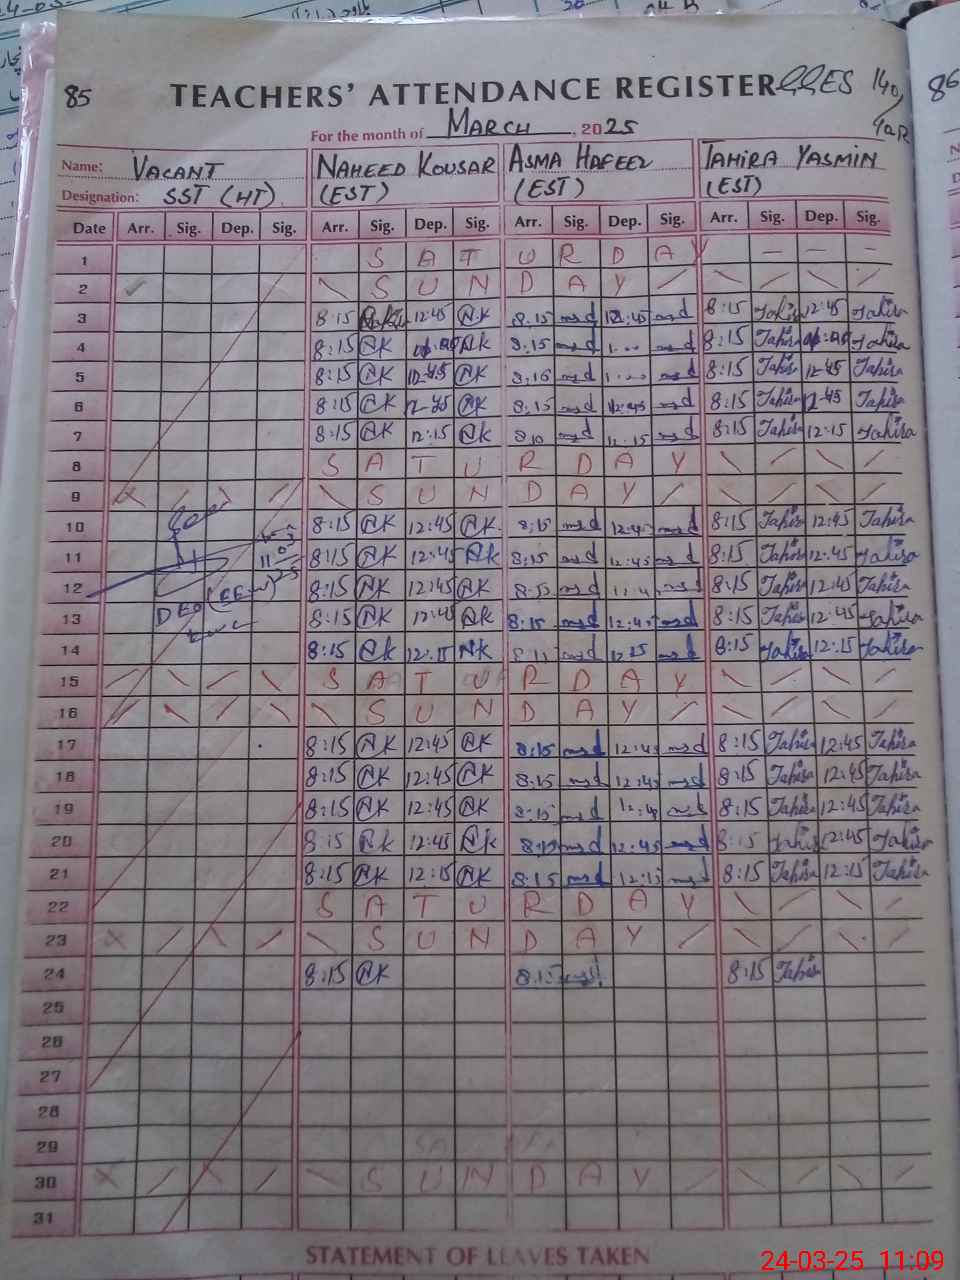 85 TEACHERS' ATTENDANCE REGISTER GGES 140/
4QR
For the month of MARCH, 2025
Name: VACANT NAHEED KOUSAR ASMA HAFEEZ TAHIRA YASMIN
Designation: SST (HT) (EST) (EST) (EST)
Date Arr. Sig. Dep. Sig. Arr. Sig. Dep. Sig. Arr. Sig. Dep. Sig. Arr. Sig. Dep. Sig.
1 S A T U R D A Y
2 S U N D A Y
3 8:15 12:45 NK 8:15 12:45 8:15 Tahira 12:45 Tahira
4 8:15 NK NK 8:15 1:00 8:15 Tahira Tahira
5 8:15 NK 12:45 NK 8:15 1:00 8:15 Tahira 12:45 Tahira
6 8:15 NK 12:45 NK 8:15 12:45 8:15 Tahira 12:45 Tahira
7 8:15 NK 12:15 NK 8:10 12:15 8:15 Tahira 12:15 Tahira
8 S A T U R D A Y
9 S U N D A Y
10 8:15 NK 12:45 NK 8:15 12:45 8:15 Tahira 12:45 Tahira
11 11-03-25 8:15 NK 12:45 NK 8:15 12:45 8:15 Tahira 12:45 Tahira
12 8:15 NK 12:45 NK 8:15 Tahira 12:45 Tahira
13 DEO 8:15 NK 12:45 NK 8:15 12:45 8:15 Tahira 12:45 Tahira
14 8:15 NK 12:15 NK 8:15 Tahira 12:15 Tahira
15 S A T U R D A Y
16 S U N D A Y
17 8:15 NK 12:45 NK 8:15 12:45 8:15 Tahira 12:45 Tahira
18 8:15 NK 12:45 NK 8:15 12:45 8:15 Tahira 12:45 Tahira
19 8:15 NK 12:45 NK 8:15 12:45 8:15 Tahira 12:45 Tahira
20 8:15 NK 12:45 NK 8:15 12:45 8:15 Tahira 12:45 Tahira
21 8:15 NK 12:15 NK 8:15 12:15 8:15 Tahira 12:15 Tahira
22 S A T U R D A Y
23 S U N D A Y
24 8:15 NK 8:15 8:15 Tahira
25
26
27
28
29
30 S U N D A Y
31
STATEMENT OF LEAVES TAKEN
24-03-25 11:09
86